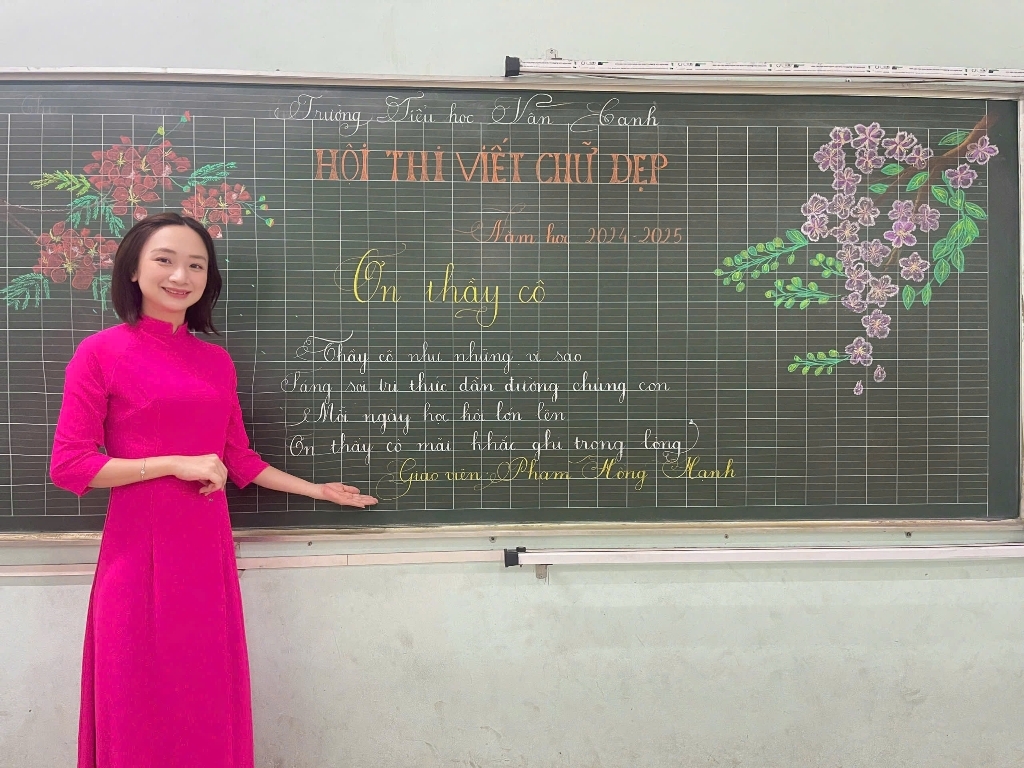 Trường Tiểu học Vân Canh
HỘI THI VIẾT CHỮ ĐẸP
Năm học 2024-2025
Ơn thầy cô
Thầy cô như những vì sao
Sáng soi tri thức dẫn đường chúng con
Mỗi ngày học hỏi lớn lên
Ơn thầy cô mãi khắc ghi trong lòng
Giáo viên: Phạm Hồng Hạnh